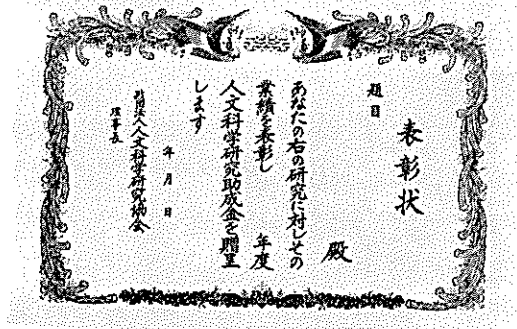 表彰状
題目
殿
あなたの右の研究に対しその
業績を表彰し 年度
人文科学研究助成金を贈呈
します
年 月 日
財団法人人文科学研究協会
理事長